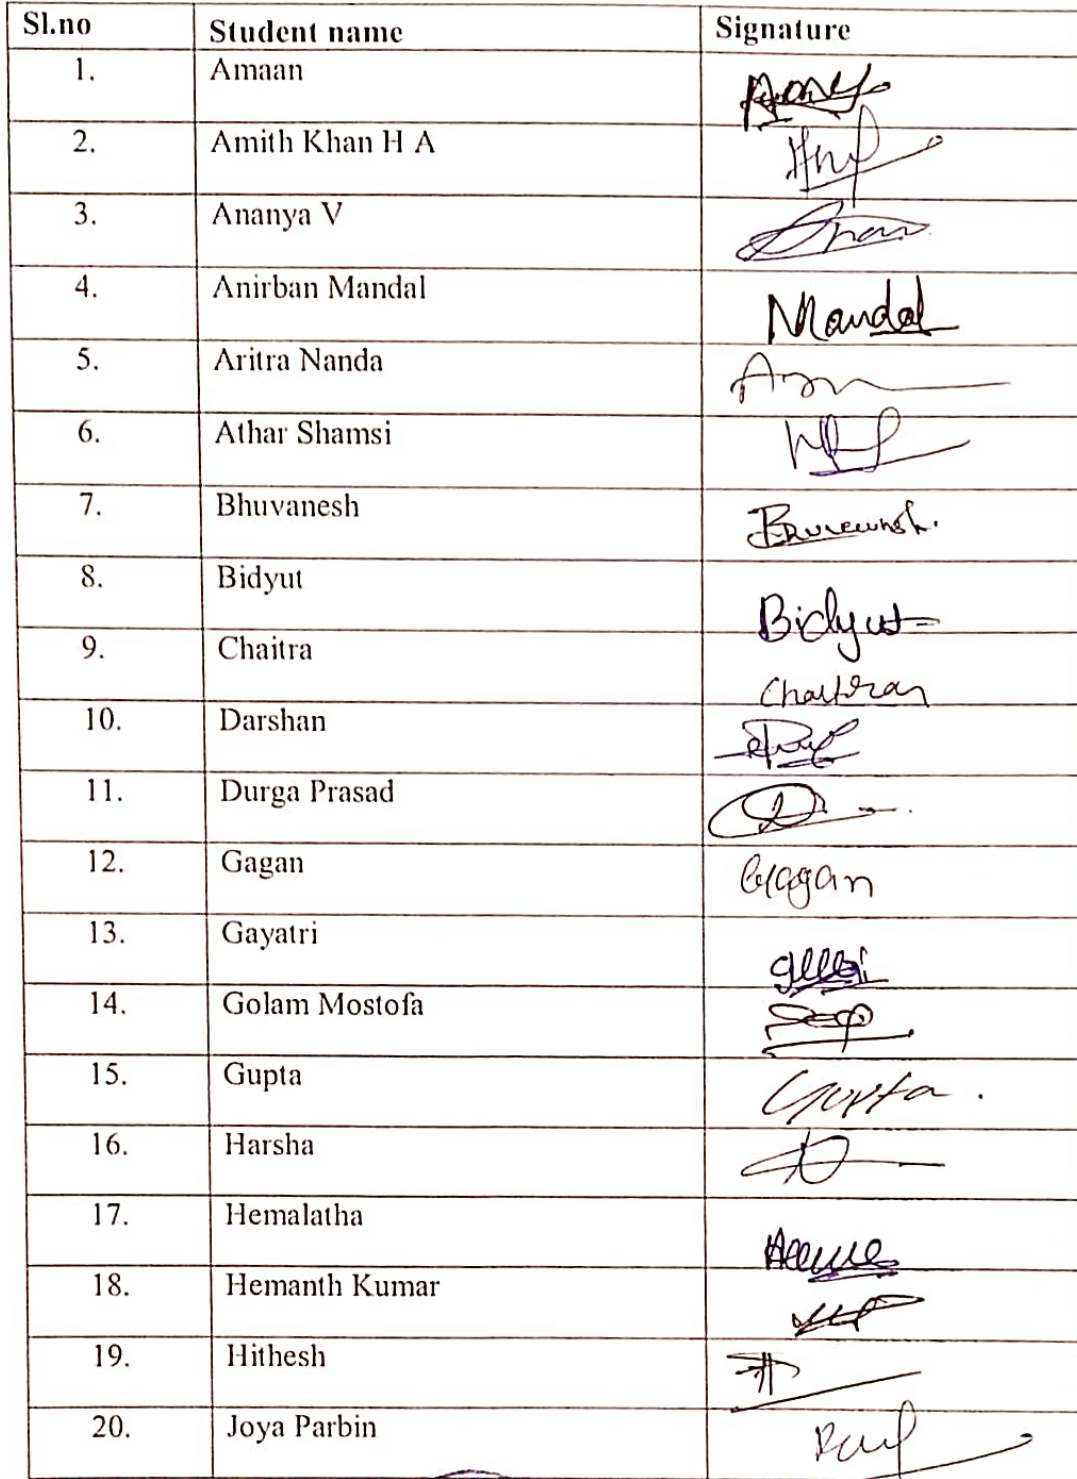 Sl.no Student name Signature
1. Amaan
2. Amith Khan H A
3. Ananya V
4. Anirban Mandal Mandal
5. Aritra Nanda
6. Athar Shamsi
7. Bhuvanesh
8. Bidyut Bidyut
9. Chaitra
10. Darshan
11. Durga Prasad
12. Gagan Gagan
13. Gayatri
14. Golam Mostofa
15. Gupta Gupta.
16. Harsha
17. Hemalatha
18. Hemanth Kumar
19. Hithesh
20. Joya Parbin